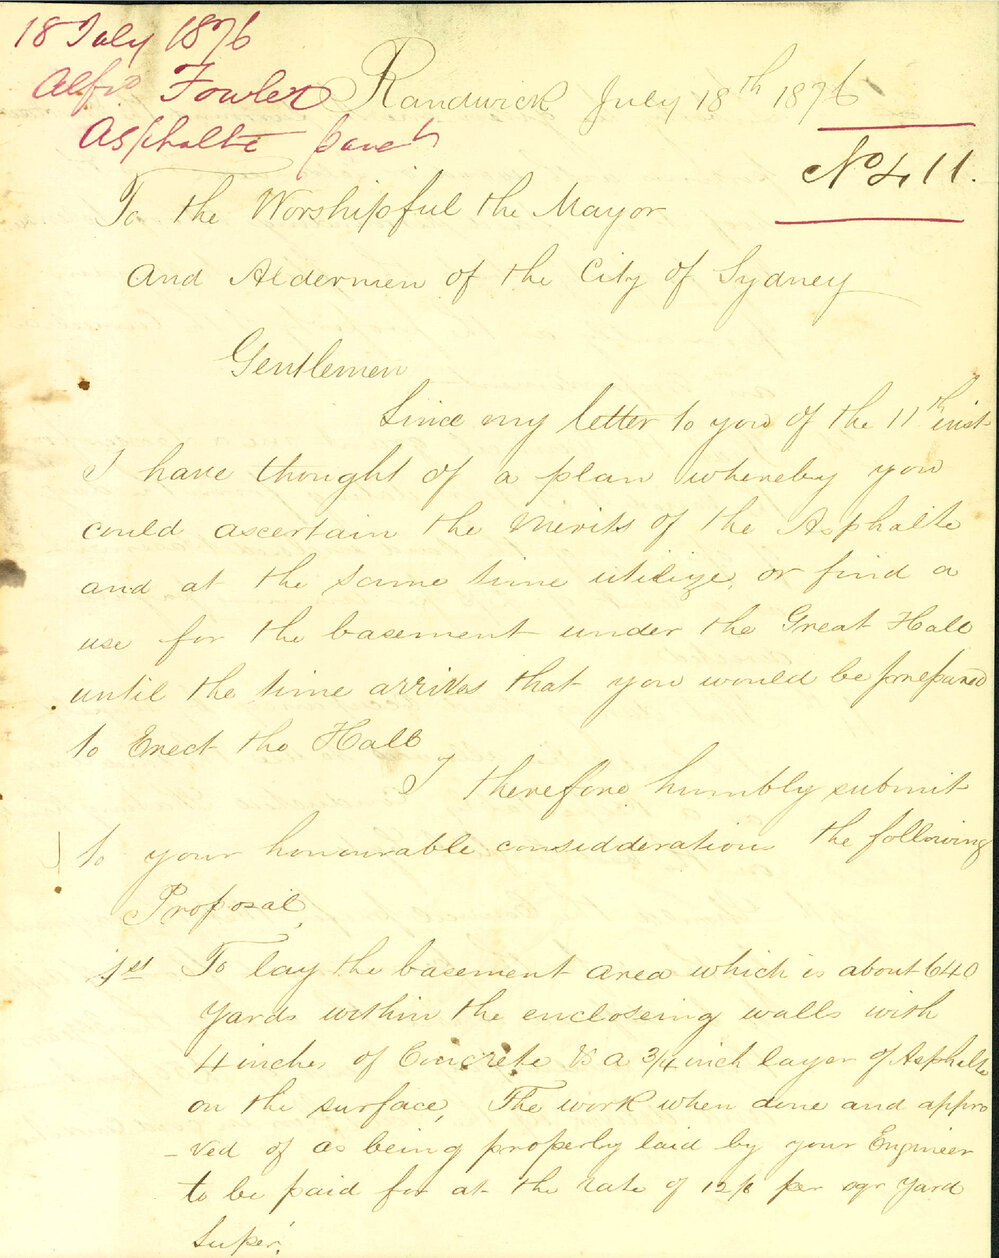 18 July 1876
Alfd Fowler
Asphalte pavet
Randwick July 18th 1876
No 411.
To the Worshipful the Mayor
and Aldermen of the City of Sydney
Gentlemen
Since my letter to you of the 11th inst
I have thought of a plan whereby you
could ascertain the merits of the Asphalte
and at the same time utilize, or find a
use for the basement under the Great Hall
until the time arrives that you would be prepared
to Erect the Hall
I therefore humbly submit
to your honourable considderation the following
Proposal,
1st To lay the basement area which is about 640
Yards within the enclosing walls with
4 inches of Concrete & a 3/4 inch layer of Asphalte
on the surface, The work when done and appro
-ved of as being properly laid by your Engineer
to be paid for at the rate of 12/6 per sqr Yard
Super.